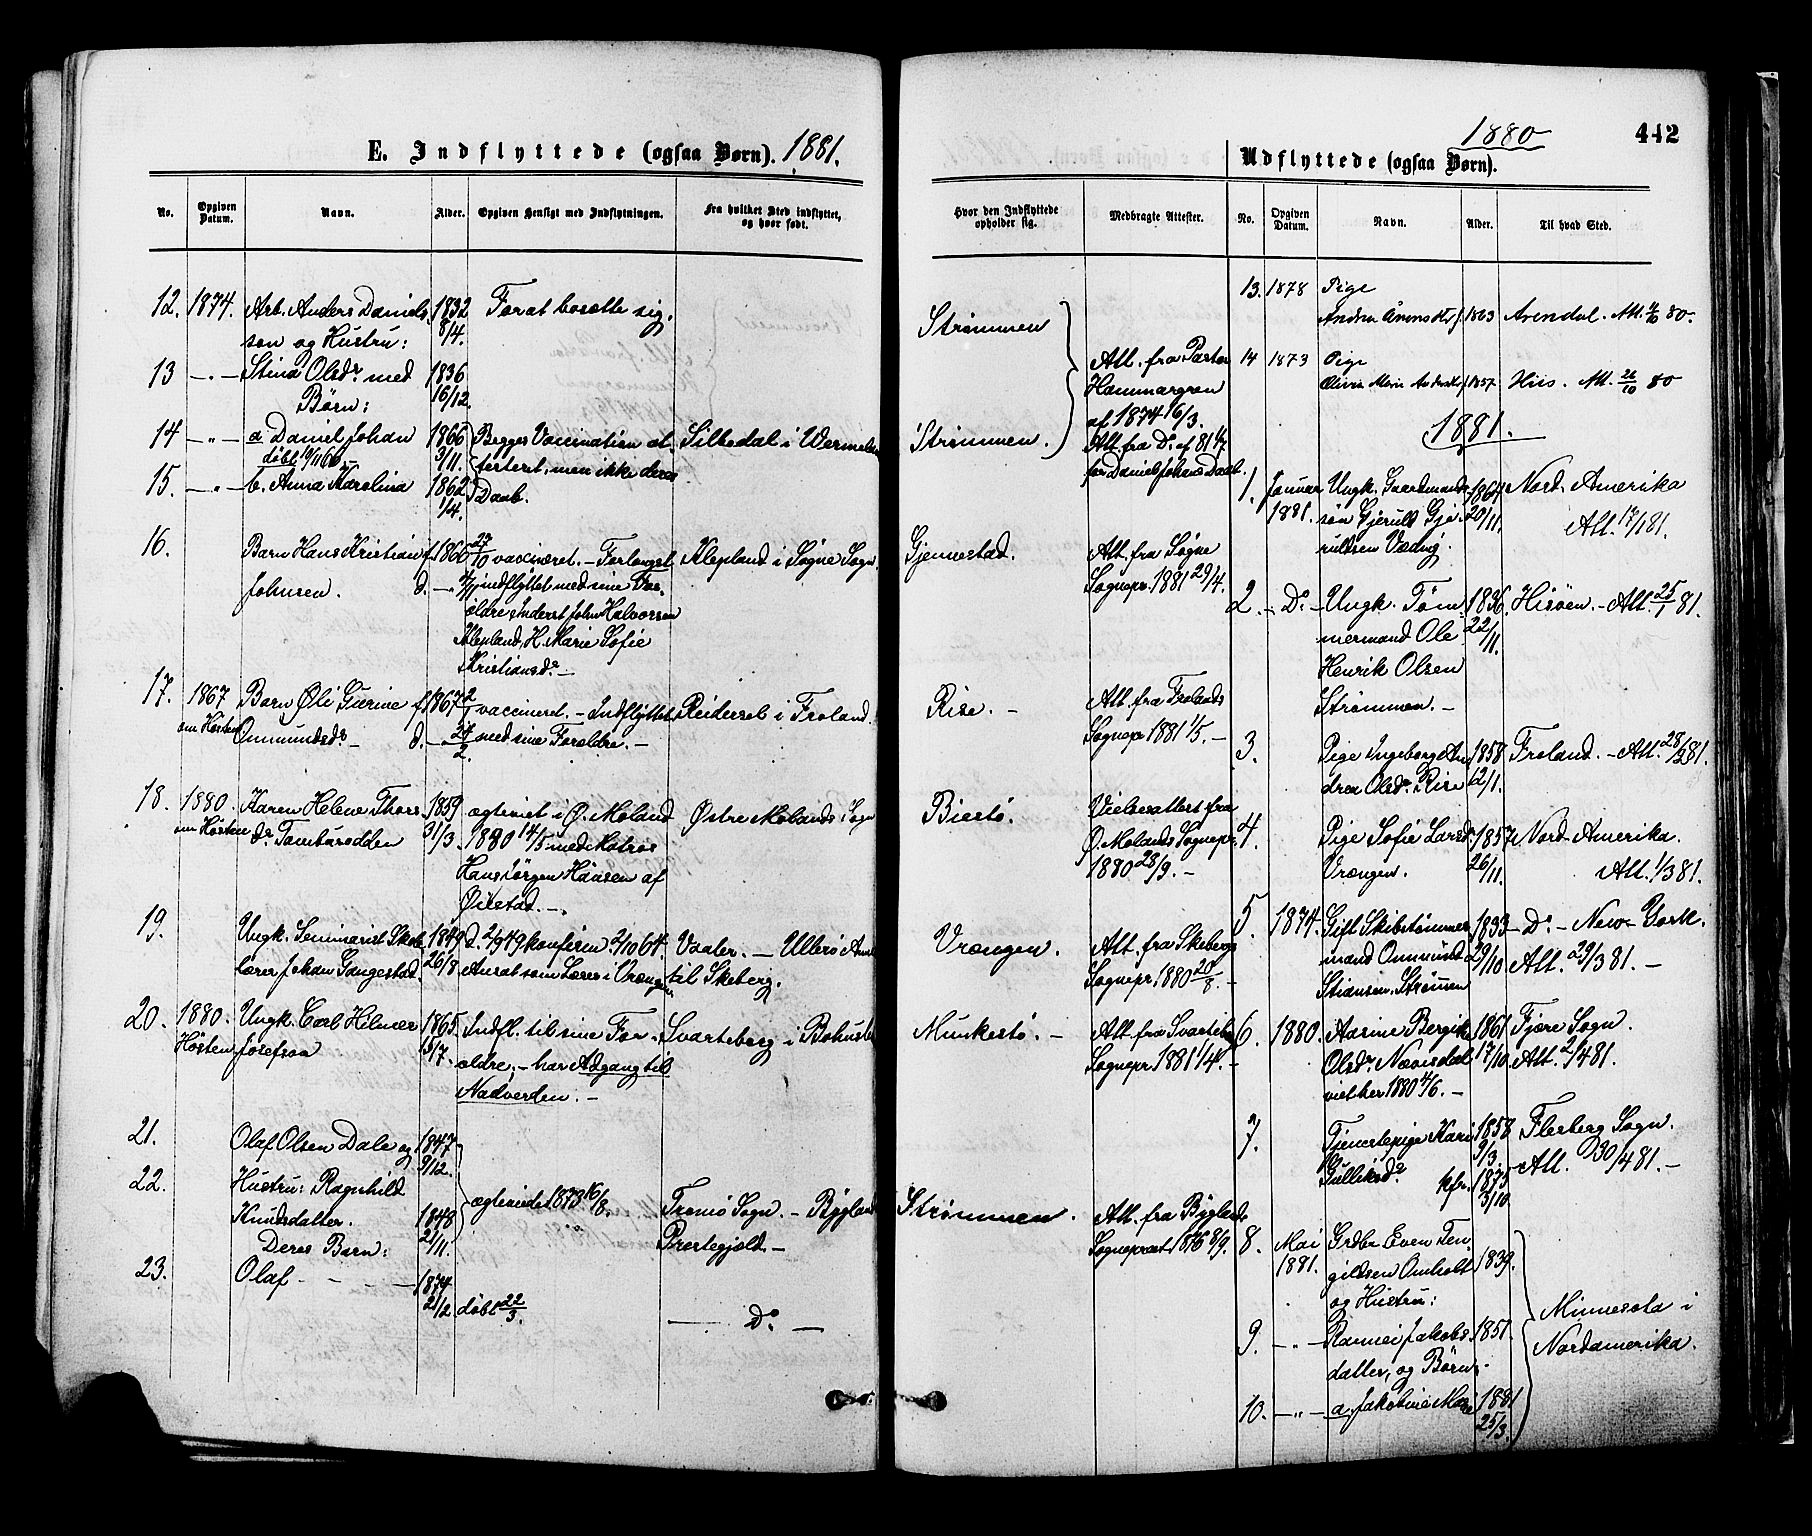 442
E. Indflyttede (ogsaa Børn). 1881.
1880
Udflyttede (ogsaa Børn).
No.
Opgiven Datum.
Navn.
Alder.
Opgiven Hensigt med Indflytningen.
Fra hvilket Sted indflyttet, og hvor født.
Hvor den Indflyttede opholder sig.
Medbragte Attester.
No.
Opgiven Datum.
Navn.
Alder.
Til hvad Sted.
12. 1874. Arb. Anders Daniels- 1832 For at bosætte sig. Strømmen
søn og Hustru: 8/4.
13 —"— Stina Olsdr. med 1836 Att. fra Pastor
Børn: 16/12. Hammargren
af 1874 16/3.
14 —"— a Daniel Johan 1866 Begges Vaccination at- Silbodal i Wermeln Strømmen. Att. fra Do. af 81
døbt 3/11. testeret, men ikke deres for Daniel Johans Daab.
15. —"— b. Anna Karolina 1862 Daab.
1/4.
16. Barn Hans Kristian f. 1860 vaccineret. — Forlangst Klepland i Søgne Sogn. Gjennestad. Att. fra Søgne
Johnsen. d. — indflyttet med sine For- Sognepr. 1881 29/4.
ældre Inderst John Halvorsen
Klepland, H. Marie Sofie
Kristiansdr. —
17. 1867 Barn Øli Gurine f. 1867 vaccineret. — Indflyttet Reiersel i Froland. Rise. — Att. fra Frolands
om Høsten Omundsdr. — d. — 24/2. med sine Forældre. — Sognepr. 1881 1/5. —
18. 1880. Karen Helene Thors- 1859 ægteviet i Ø. Moland Østre Molands Sogn Biestø. Vielsesattest fra
om Høsten dr. Tamburodden 31/3. 1880 14/5 med Matros Ø. Molands Sognepr.
Hans Jørgen Hansen af 1880 28/9. —
Øiestad. —
19. Ungk. Seminarist Skole- 1849 d. 2/9 49 konfirm. 2/10 64. Vaaler. — Ullerø Ann Vrængen. Att. fra Skeberg
lærer Johan Gangestad. 26/8 Ansat som Lærer i Vrængen til Skeberg. Sognepr. 1880 20/8. —
20. 1880. Ungk. Carl Hilmer 1865. Indfl. til sine For- Svarteborg i Bohusle Munkestø. — Att. fra Svartebo
Høsten Josefson 3/7. ældre; — har Adgang til Sognepr. 1881 1/4. —
Nadverden. —
21. Olaf Olsen Dale og 1847
9/12.
22. Hustru: Ragnhild ægteviet 1873 16/8. Tromø Sogn. — Bygland Strømmen. Att. fra Byglands
Knudsdatter. 1848 Præstegjæld. — Sogneprest 1876 8/9.
Deres Barn: 21/11.
23. Olaf — — — 1874
2/2. døbt 22/3. — Do. —
13. 1878 Pige
Andrea f. 1863 Arendal. Att. 80.
14 1873 Pige
f. 1857. Hiis. Att. 26/10 80
1881.
1. Januar Ungk. Gaardmands- 1864 Nord-Amerika
1881. søn Gjeruld Gje- 20/11. Att. 17/1 81.
ruldsen Væding.
2. — Do. — Ungk. Tøm- 1836. Hisøen. — Att. 25/1 81.
mermand Ole 22/11.
Henrik Olsen
Strømmen. —
3. Pige Ingeborg An- 1858 Froland. — Att. 28/2 81.
drea Olsdr. Rise 12/1.
4. Pige Sofie Larsd. 1857 Nord-Amerika.
Vrængen. 26/11. Att. 1/3 81.
5. 1874. Gift Skibstømmer- 1833 — Do. — New-York.
mand Omund 29/10 Att. 29/3 81. —
Stiansen Strømmen
6. 1880. Aasine Bergit 1861 Fjære Sogn.
Olsdr. Næsisdal 17/10. Att. 2/4 81.
viet her 1880 4/6. —
7. Tjenestepige Kari 1858 Flesberg Sogn.
Gulliksdr. 9/3. Att. 30/4 81. —
kfr. 1875
3/10.
8. Mai Grdbr. Even Ten- 1839. Minnesota i
1881. gildsen Omholt Nordamerika.
og Hustru:
9. —"— Rannei Jakobs- 1851.
datter, og Børn: —
10. —"— a, Jakobine Marie 1881
25/3.